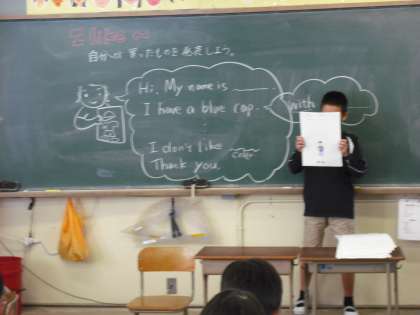 自分の書いたものを発表しよう。
Hi, My name is ____
I have a blue cap.
with
I don't like ____
color
Thank you.